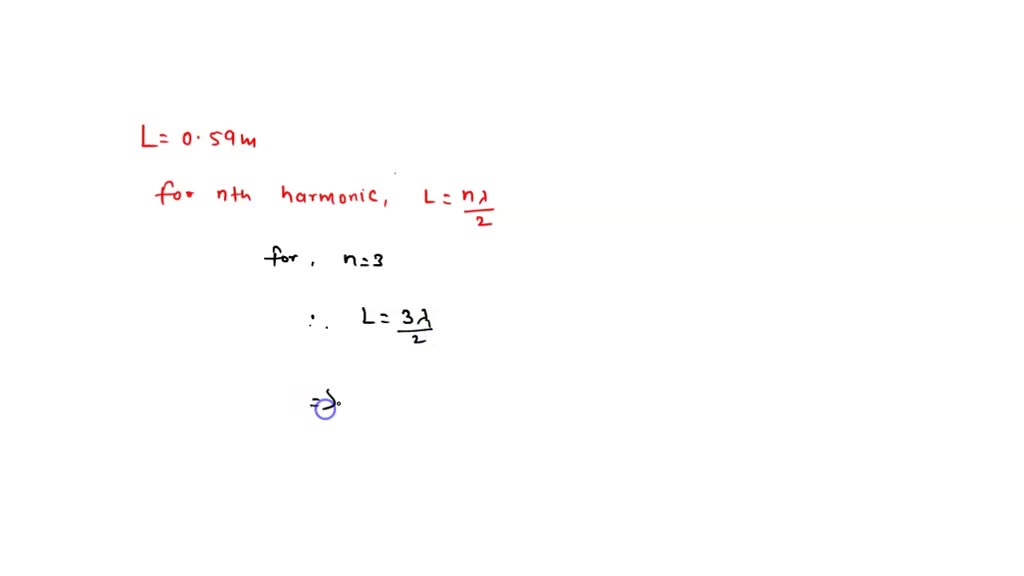 L= 0.59m
for nth harmonic, L = nλ/2
for, n=3
∴ L = 3λ/2
=>